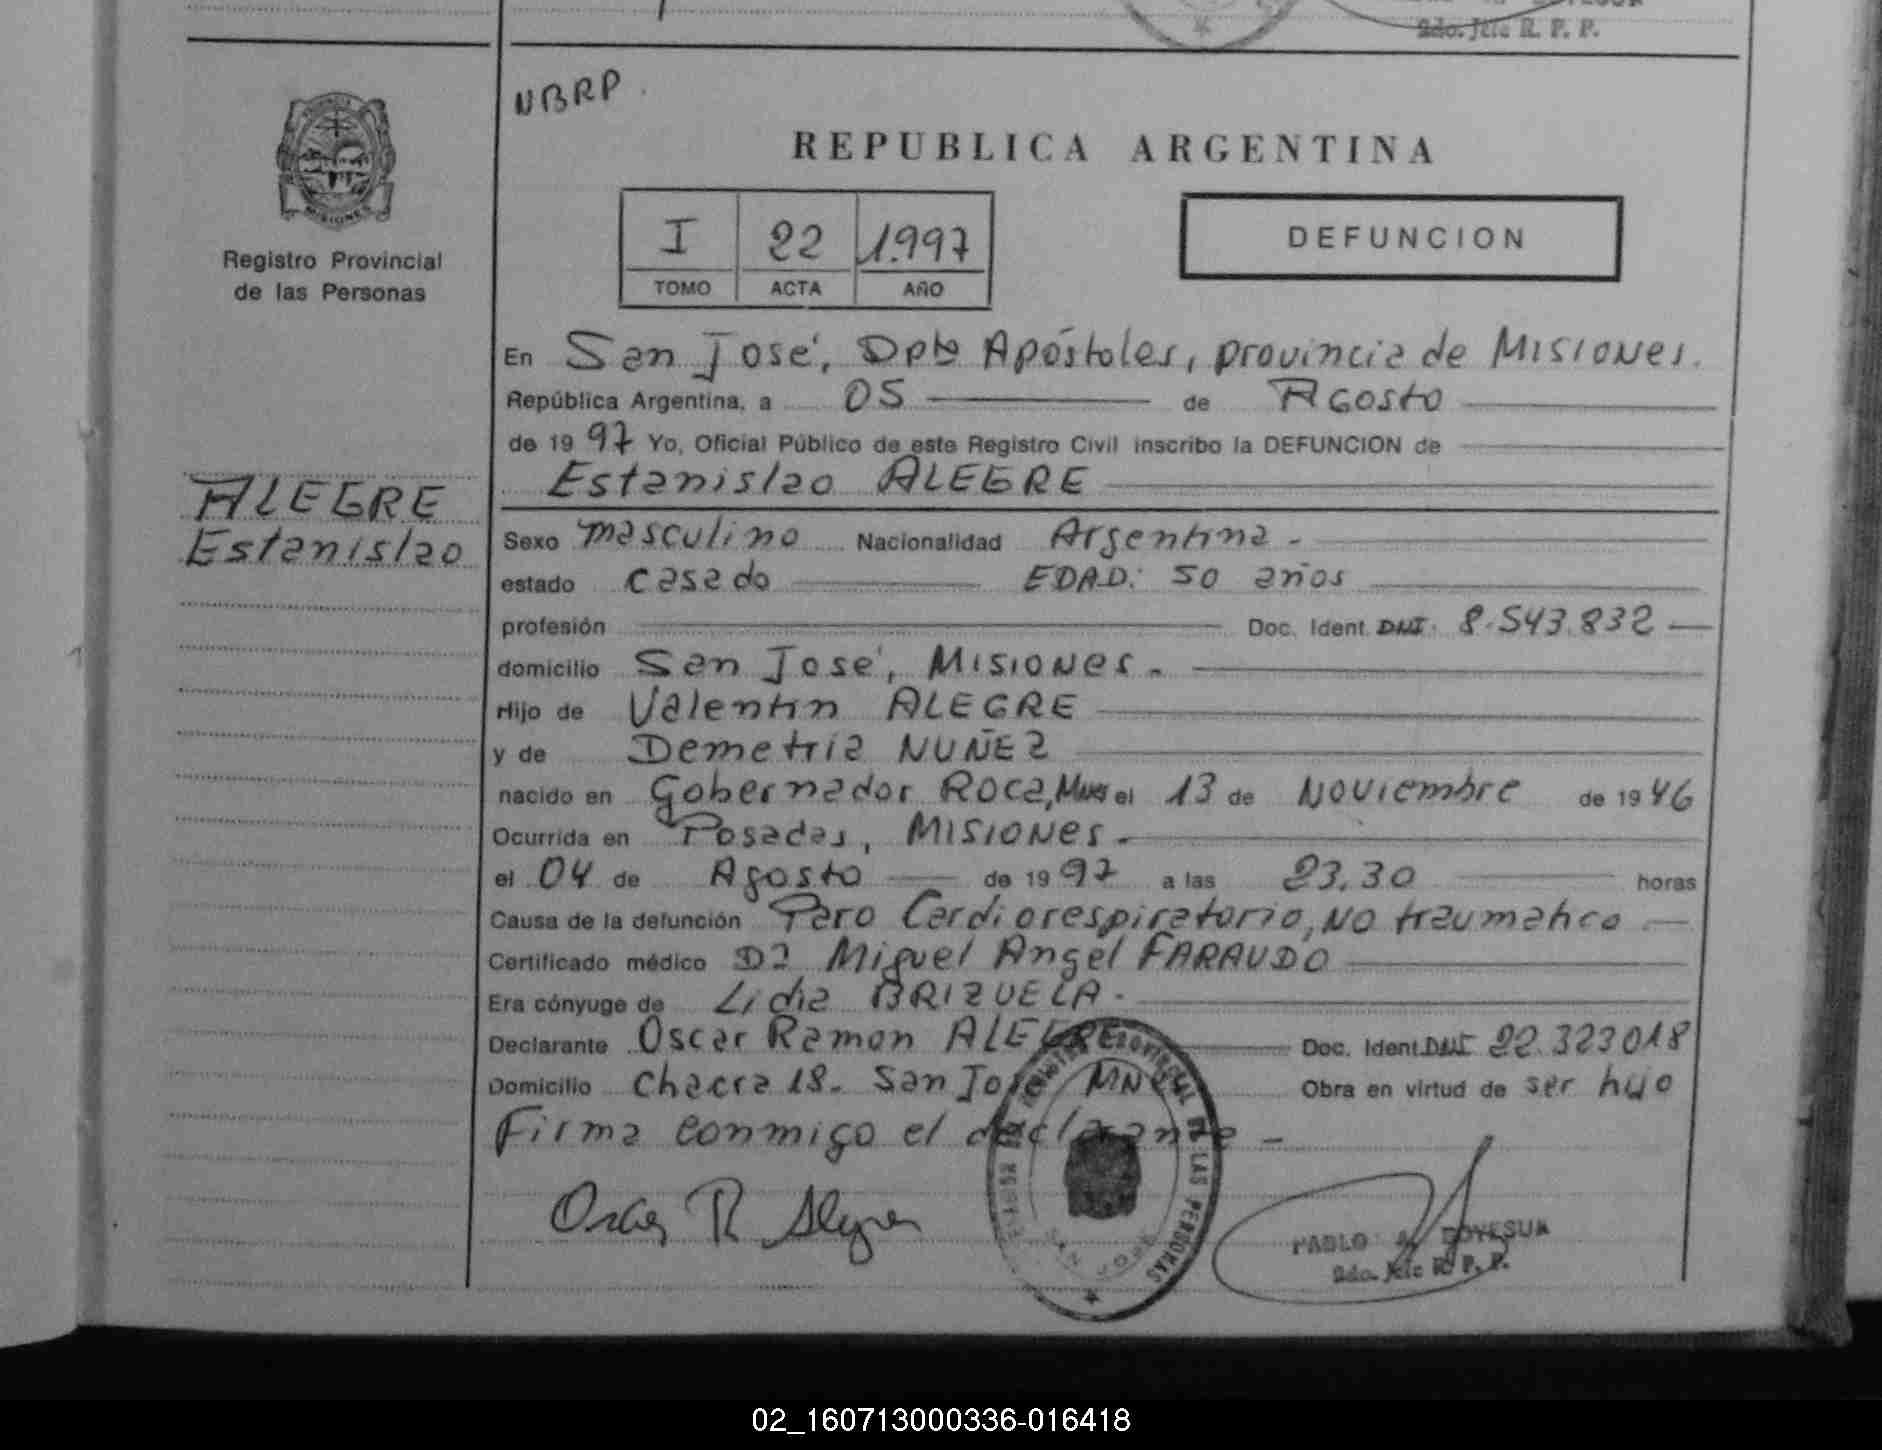 2do. Jefe R. P. P.
NBRP
REPUBLICA ARGENTINA
MISIONES
Registro Provincial
de las Personas
I 22 1.997
TOMO ACTA AÑO
DEFUNCION
En San José, Dpto Apóstoles, provincia de Misiones.
República Argentina, a 05 de Agosto
de 1997 Yo, Oficial Público de este Registro Civil inscribo la DEFUNCION de
Estanislao ALEGRE
ALEGRE
Estanislao
Sexo masculino Nacionalidad Argentina.-
estado casado EDAD: 50 años
profesión Doc. Ident. DNI. 8.543.832
domicilio San José, Misiones.-
Hijo de Valentin ALEGRE
y de Demetria NUÑEZ
nacido en Gobernador Roca, Mnes el 13 de Noviembre de 1946
Ocurrida en Posadas, Misiones.-
el 04 de Agosto de 1997 a las 23.30 horas
Causa de la defunción Paro Cardiorespiratorio, no traumatico
Certificado médico Dr Miguel Angel FARAUDO
Era cónyuge de Lidia BRIZUELA.-
Declarante Oscar Ramon ALEGRE Doc. Ident. DNI 22.323018
Domicilio Chacra 18. San José MNES Obra en virtud de ser hijo
Firma conmigo el declarante -
Oscar R Alegre
REGISTRO PROVINCIAL DE LAS PERSONAS
SAN JOSE
PABLO A.
2do. Jefe R. P. P.
02_160713000336-016418